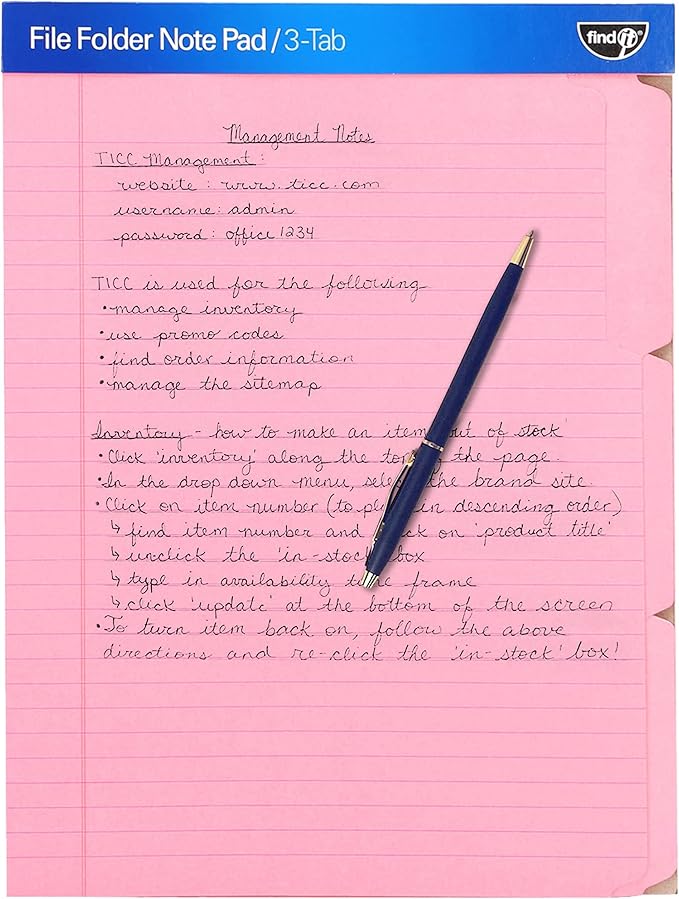 File Folder Note Pad / 3-Tab
find it
Management Notes
TICC Management:
website: www.ticc.com
username: admin
password: office1234
TICC is used for the following
• manage inventory
• use promo codes
• find order information
• manage the sitemap
Inventory - how to make an item out of stock'
• Click 'inventory' along the top of the page.
• In the drop down menu, select the brand site.
• Click on item number (to in descending order)
↳ find item number and on 'product title'
↳ unclick the 'in-stock' box
↳ type in availability frame
↳ click 'update' at the bottom of the screen
• To turn item back on, follow the above
directions and re-click the 'in-stock' box!